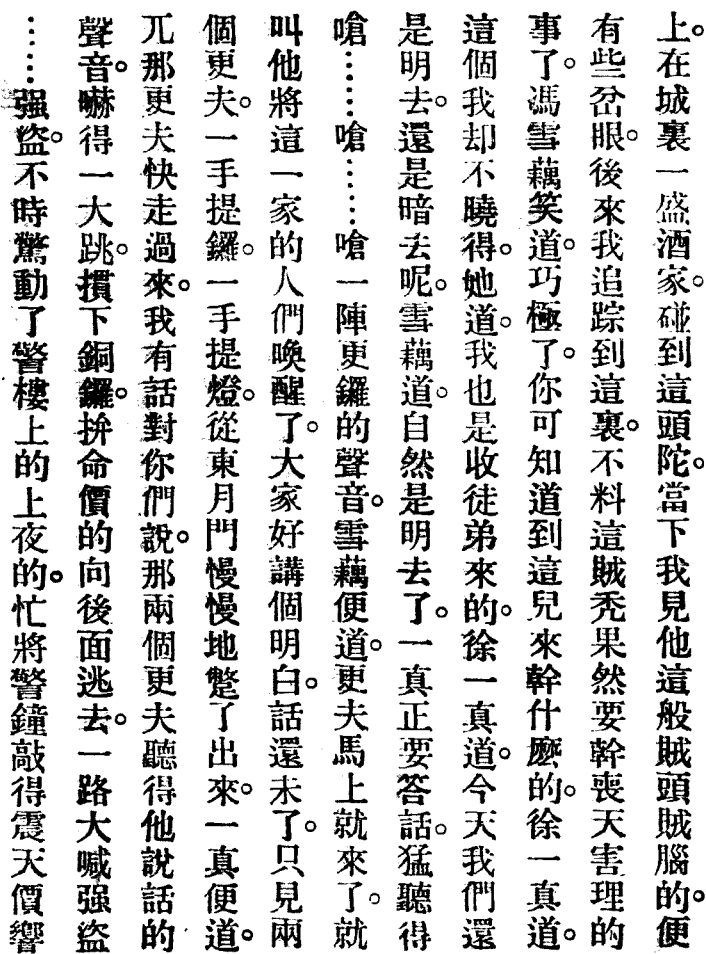 上。在城裏一盛酒家。碰到這頭陀。當下我見他這般賊頭賊腦的。便
有些岔眼。後來我追踪到這裏。不料這賊禿果然要幹喪天害理的
事了。馮雪藕笑道。巧極了。你可知道到這兒來幹什麽的。徐一真道。
這個我却不曉得。她道。我也是收徒弟來的。徐一真道。今天我們還
是明去。還是暗去呢。雪藕道。自然是明去了。一真正要答話。猛聽得
嗆……嗆……嗆一陣更鑼的聲音。雪藕便道。更夫馬上就來了。就
叫他將這一家的人們喚醒了。大家好講個明白。話還未了。只見兩
個更夫。一手提鑼。一手提燈。從東月門慢慢地蹩了出來。一真便道。
兀那更夫快走過來。我有話對你們說。那兩個更夫聽得他說話的
聲音。嚇得一大跳。摜下銅鑼。拚命價的向後面逃去。一路大喊强盜
……强盜。不時驚動了警樓上的上夜的。忙將警鐘敲得震天價響